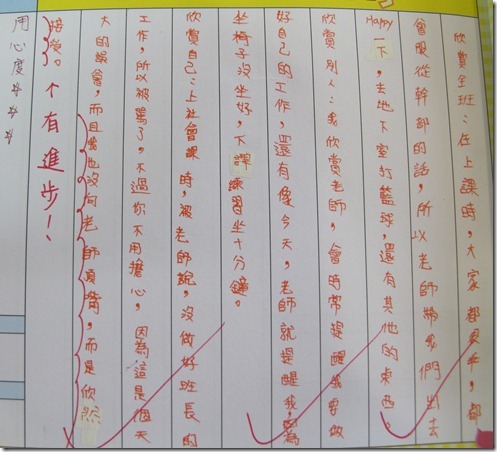 欣賞全班:在上課時,大家都很乖,都
會服從幹部的話,所以老師帶我們出去
Happy一下,去地下室打籃球,還有其他的東西。
欣賞別人:我欣賞老師,會時常提醒我要做
好自己的工作,還有像今天,老師就提醒我,因為
坐椅子沒坐好,下課練習坐十分鐘。
欣賞自己:上社會課時,被老師說,沒做好班長的
工作,所以被罵了,不過你不用擔心,因為這是個天
大的誤會,而且我也沒向老師頂嘴,而是欣然
接受。
个有進步!
用心度